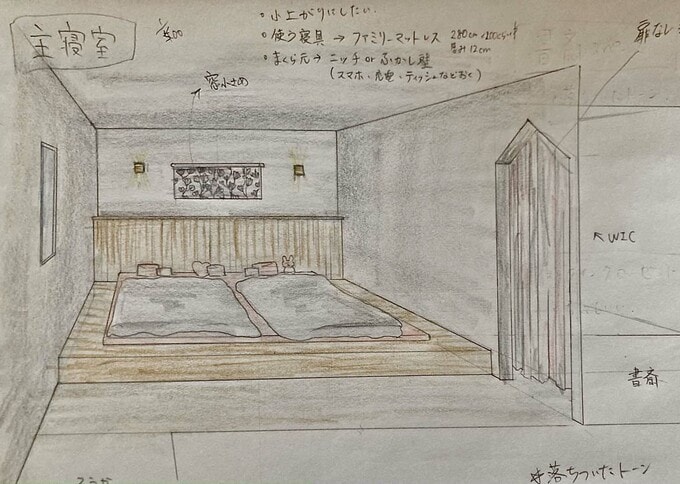 主寝室
・小上がりにしたい.
・使う寝具 → ファミリーマットレス 280cm×200cm
厚み12cm
・まくら元 → ニッチ or ふかし壁
(スマホ・充電・ティッシュなどおく)
窓小さめ
扉なし
WIC
書斎
落ちついたトーン